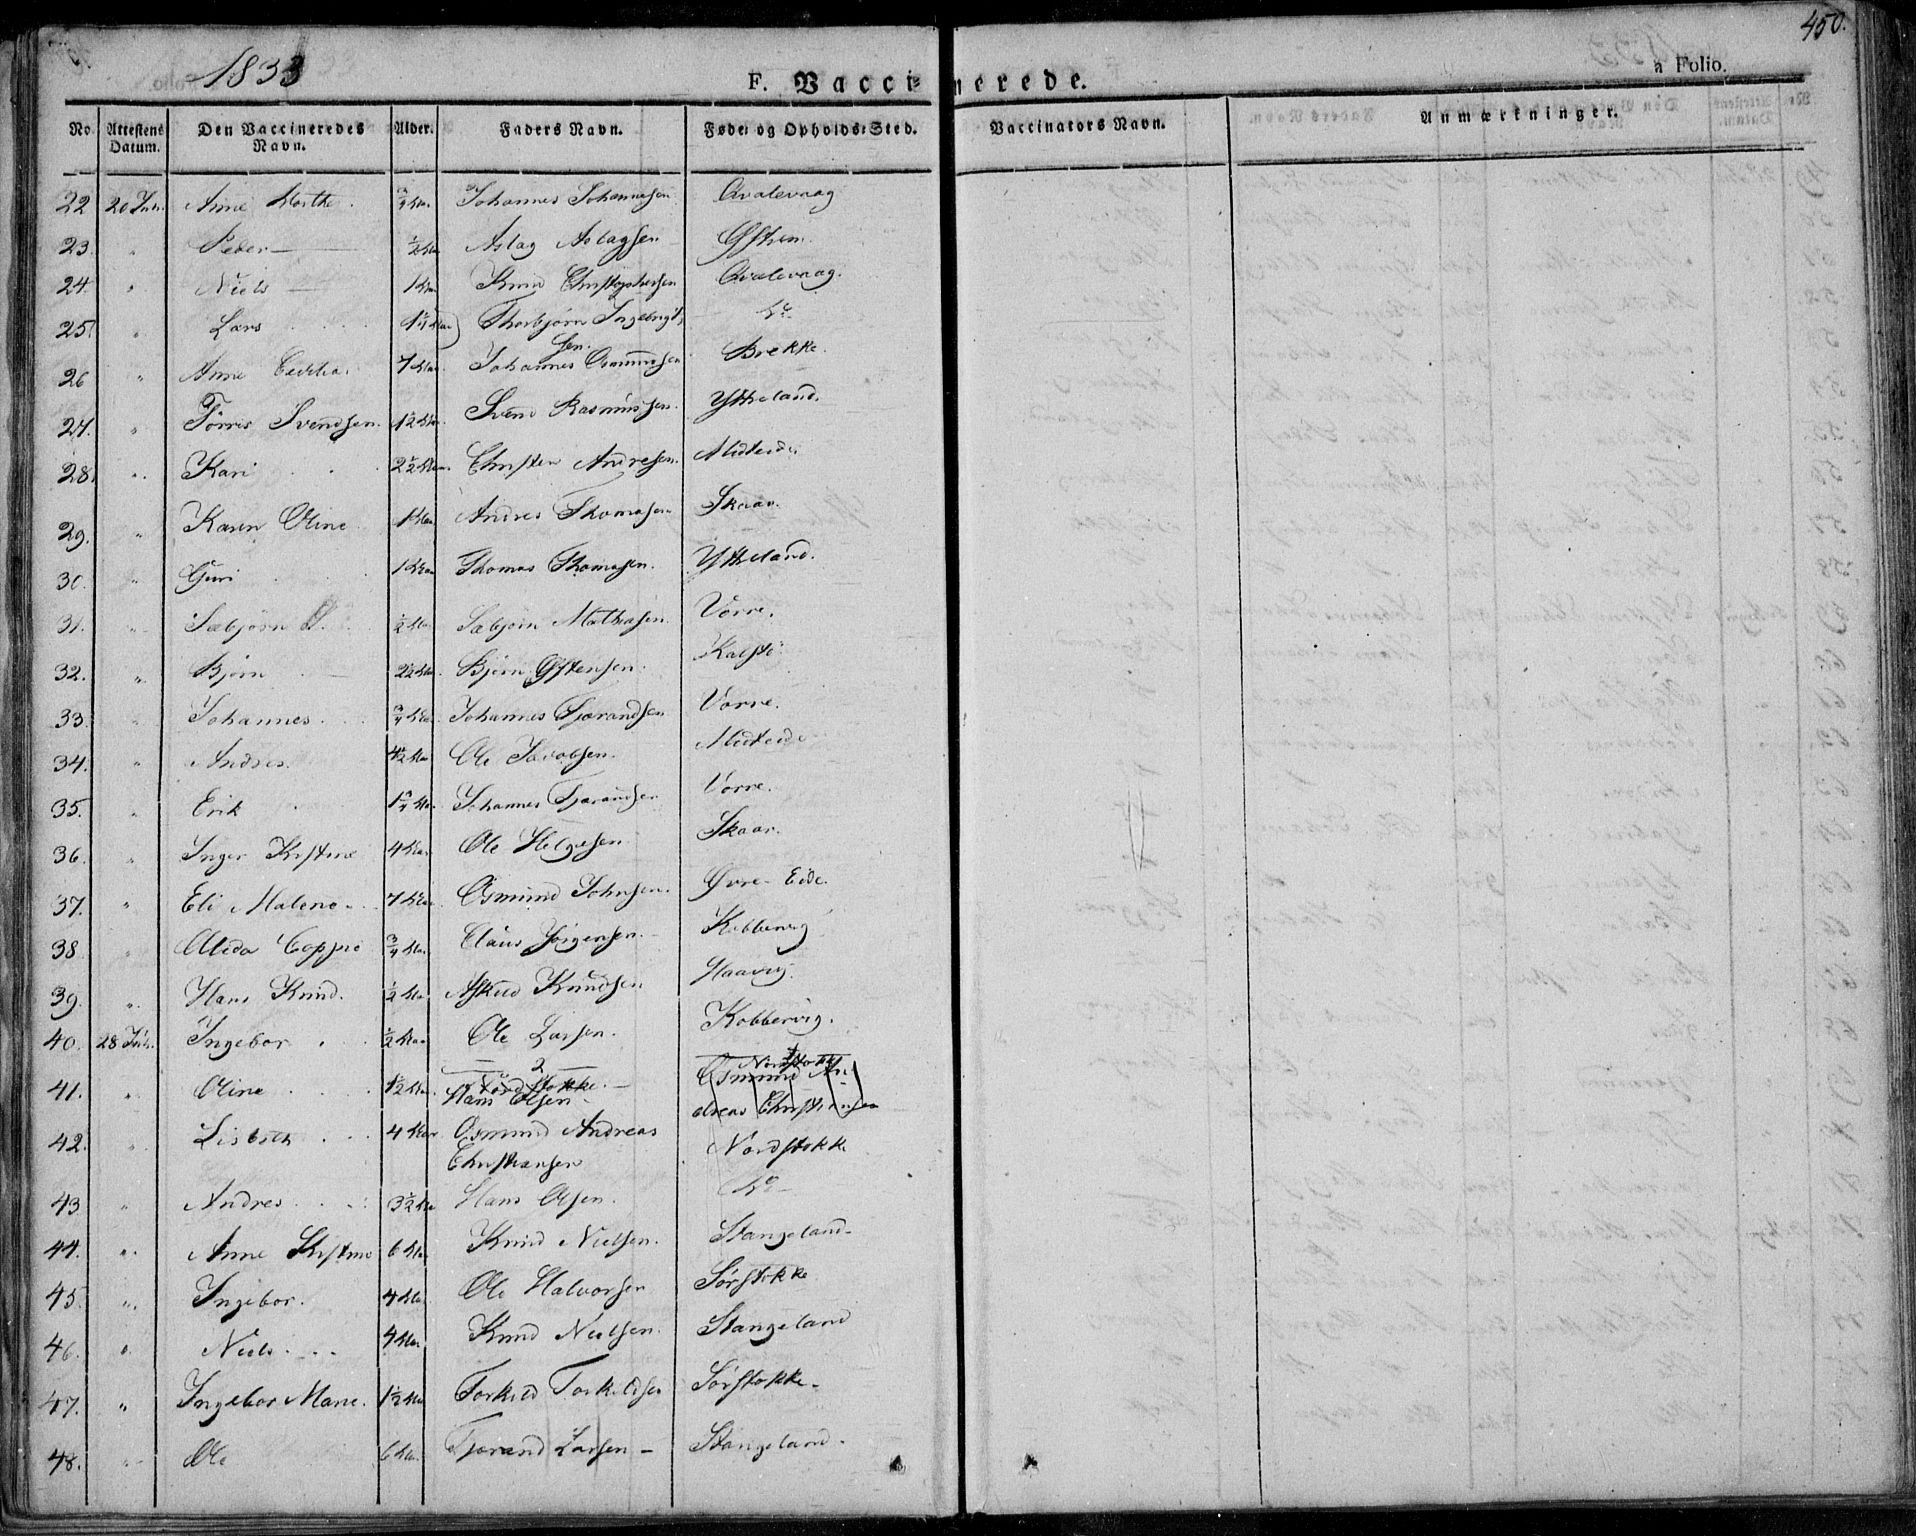 450.
1833
F. Vaccinerede.
a Folio.
No. Attestens Datum. Den Vaccineredes Navn. Alder. Faders Navn. Føde- og Opholds-Sted. Vaccinators Navn. Anmærkninger.
22 20 Juli. Anne Marthe. 3/4 Aar Johannes Johannesen Qvalevaag
23. " Peder — 1/2 Aar Aslag Aslagsen
24. " Niels — 1 Aar Knud Christophersen Qvalevaag.
25. " Lars Thorbjørn Ingebrigt-
sen. Do
26 " Anne 7 Aar Johannes Osmundsen Brekke.
27. " Tørris Svendsen. 1 1/2 Aar Svend Rasmussen. Yttreland.
28. " Kari 2 1/2 Aar. Christen Andresen. Midteide
29. " Karen Oline 1 Aar Andres Thomasen Skaar.
30. " Guri 1 Aar Thomas Thomasen. Yttreland.
31. " Sæbjørn 1/2 Aar Sæbjørn Mathiasen. Vorre.
32. " Bjørn 2 1/2 Aar. Bjørn Østensen. Kalstø
33. " Johannes. 3/4 Aar. Johannes Tjerandsen Vorre.
34. " Andres. 4 1/2 Aar Ole Jacobsen. Midteide
35. " Erik Johannes Tjerandsen Vorre.
36. " Inger Kristine 4 Aar Ole Helgesen Skaar.
37. " Eli Malene. 7 Aar Osmund Johnsen. Øvre-Eide.
38 " 3/4 Aar. Claus Jørgensen. Kobbervig
39. " Hans Knud. 1/2 Aar Knudsen Haavig.
40. 28 Juli. Ingebor 1/2 Aar Ole Larsen. Kobbervig.
41. " Oline 1 1/2 Aar. Hans Olsen Nordstokke
42. " Lisbeth 4 Aar Osmund Andreas
Christiansen Nordstokke
43 " Andres 3 1/2 Aar Hans Olsen. Do
44. " Anne Kristine 6 Aar Knud Nielsen. Stangeland
45. " Ingebor. 4 Aar Ole Halvorsen Sørstokke
46. " Niels 4 Aar Knud Nielsen. Stangeland
47. " Ingebor Marie. 1 1/2 Aar Torkild Torkildsen Sørstokke
48. " Ole 6 Aar. Tjerand Larsen — Stangeland.